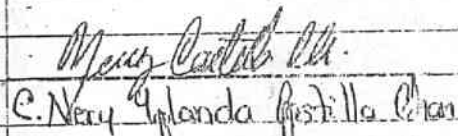 Nery Castill Ch.
C. Nery Yolanda Castilla Chan